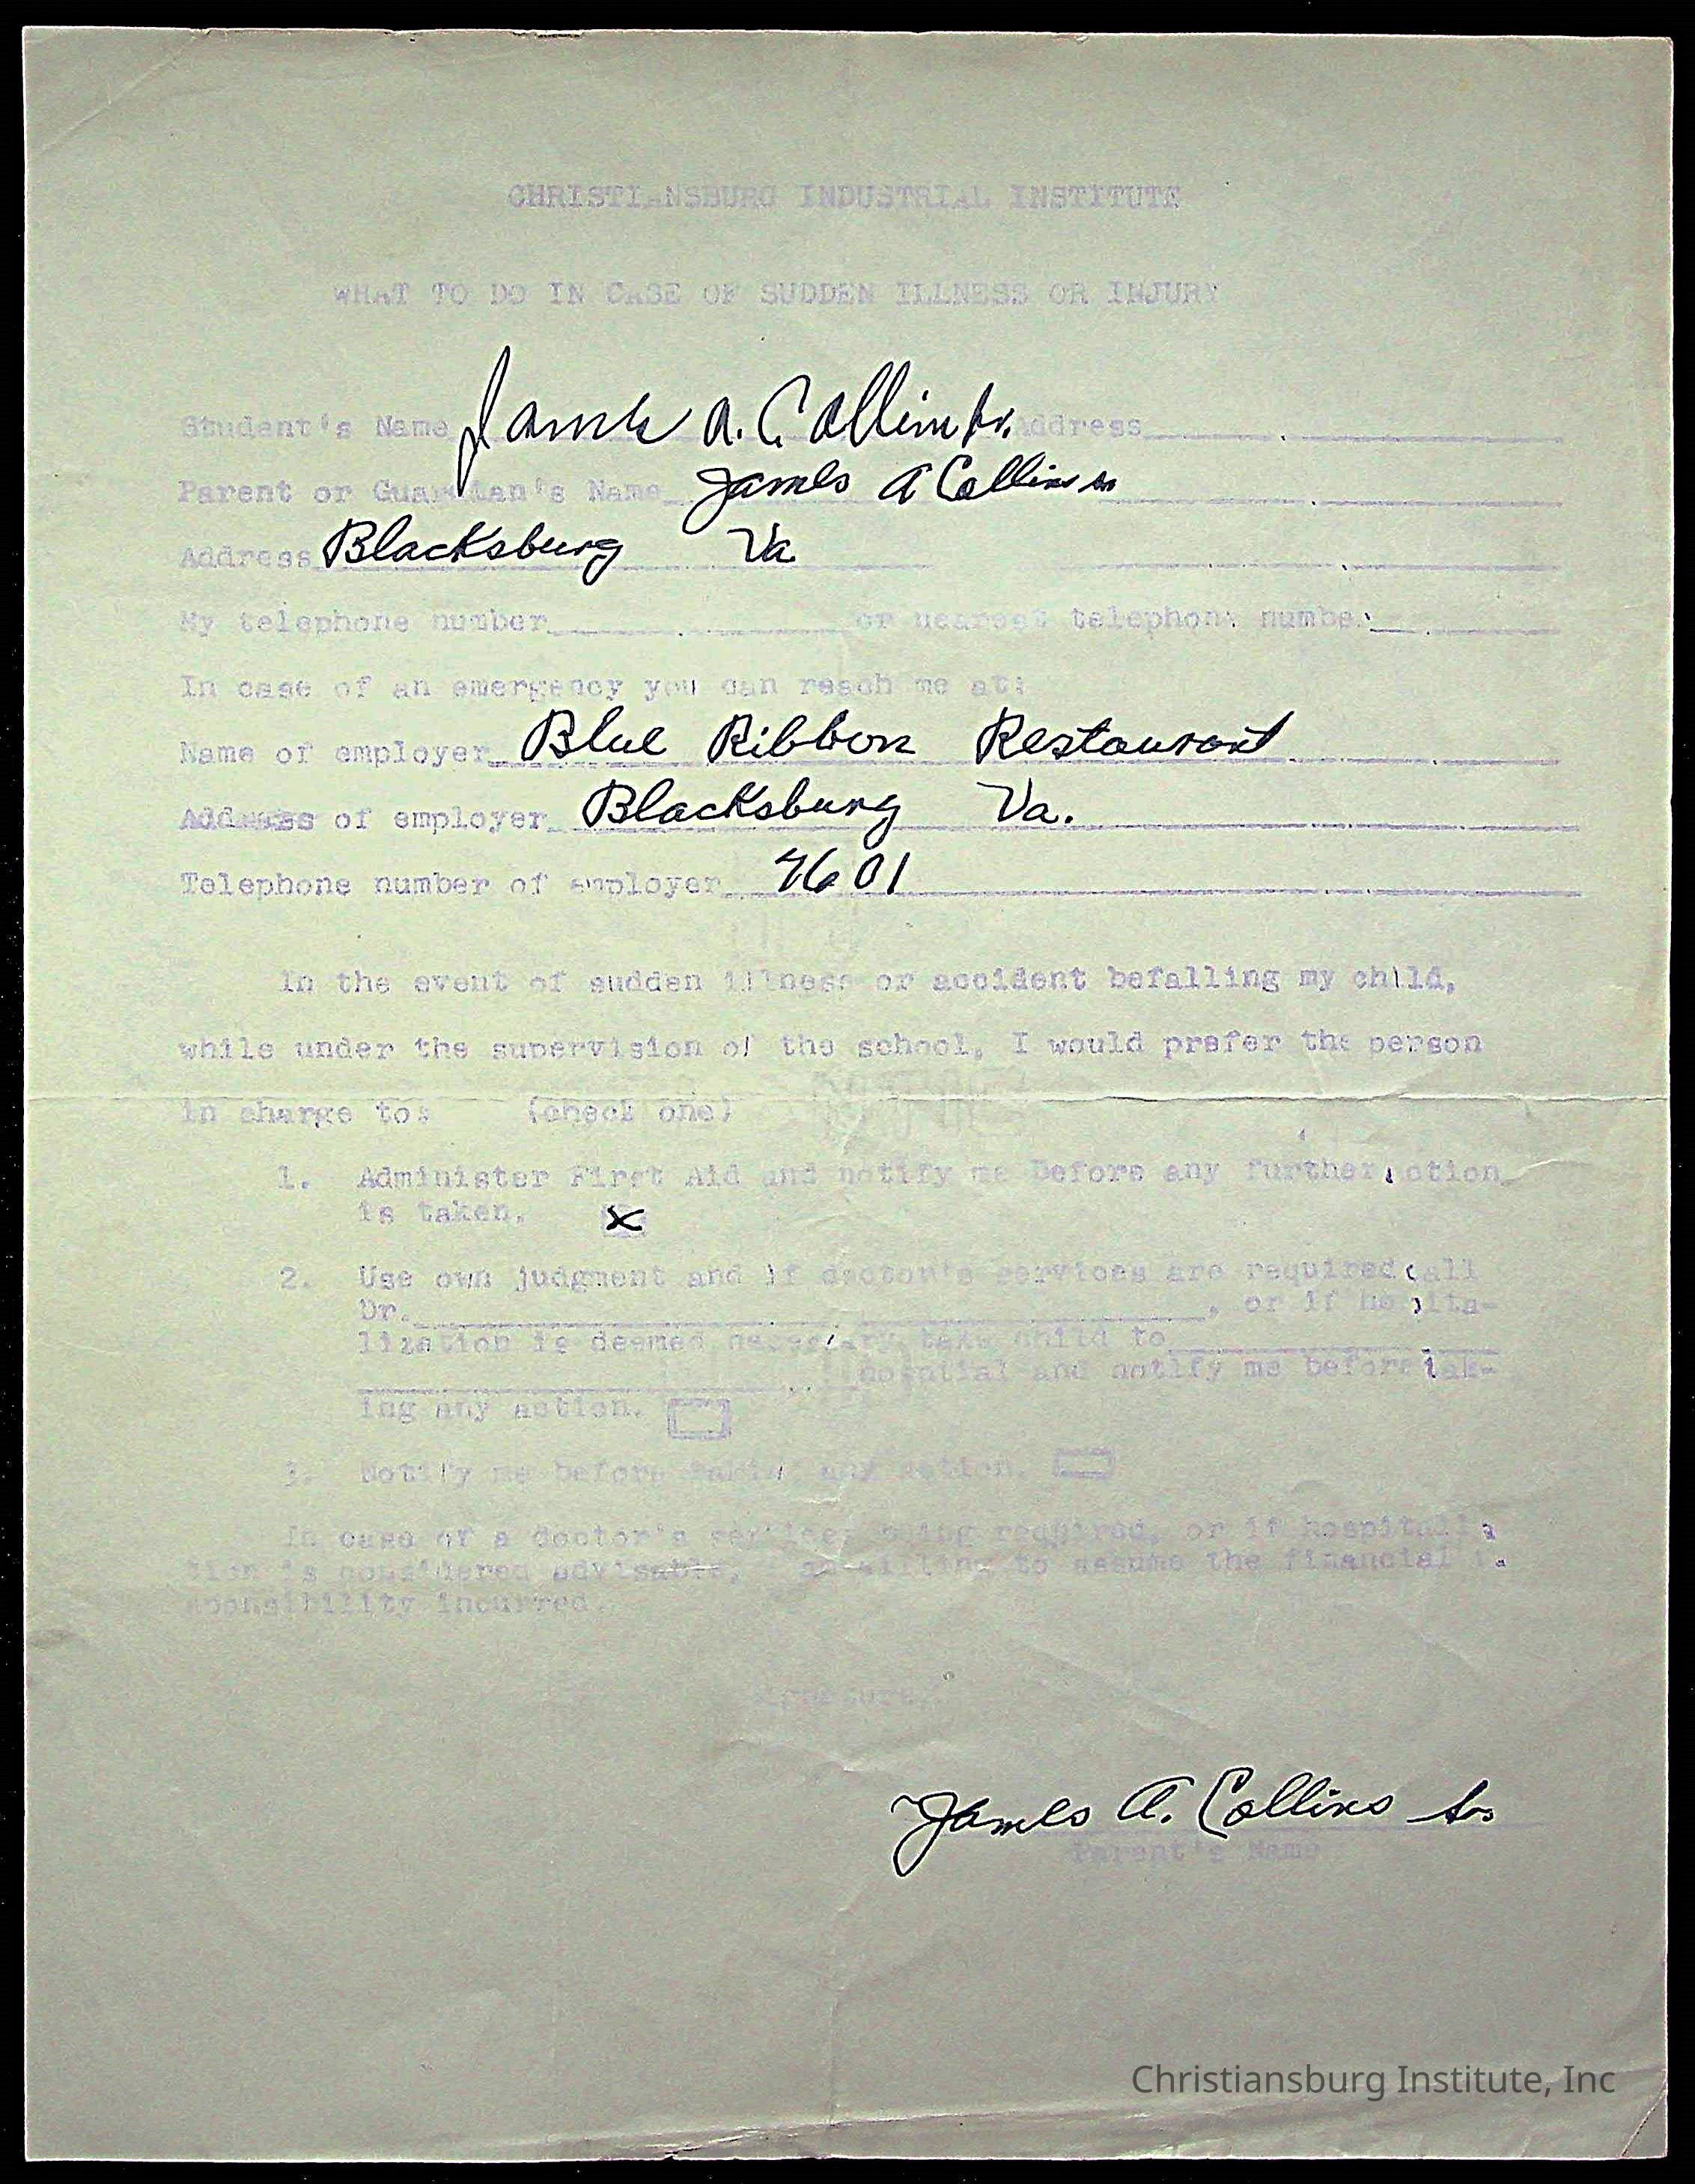 CHRISTIANSBURG INDUSTRIAL INSTITUTE
WHAT TO DO IN CASE OF SUDDEN ILLNESS OR INJURY
Student's Name James A. Collins Jr. Address
Parent or Guardian's Name James A Collins Sr
Address Blacksburg Va
My telephone number or nearest telephone number
In case of an emergency you can reach me at:
Name of employer Blue Ribbon Restaurant
Address of employer Blacksburg Va.
Telephone number of employer 4601
In the event of sudden illness or accident befalling my child,
while under the supervision of the school, I would prefer the person
in charge to: (check one)
1. Administer First Aid and notify me before any further action
is taken. X
2. Use own judgment and if doctor's services are required call
Dr. , or if hospita-
lization is deemed necessary take child to
hospital and notify me before tak-
ing any action.
3. Notify me before taking any action.
In case of a doctor's services being required, or if hospitaliza
tion is considered advisable, I am willing to assume the financial re
sponsibility incurred.
Signature
James A. Collins Sr.
Parent's Name
Christiansburg Institute, Inc